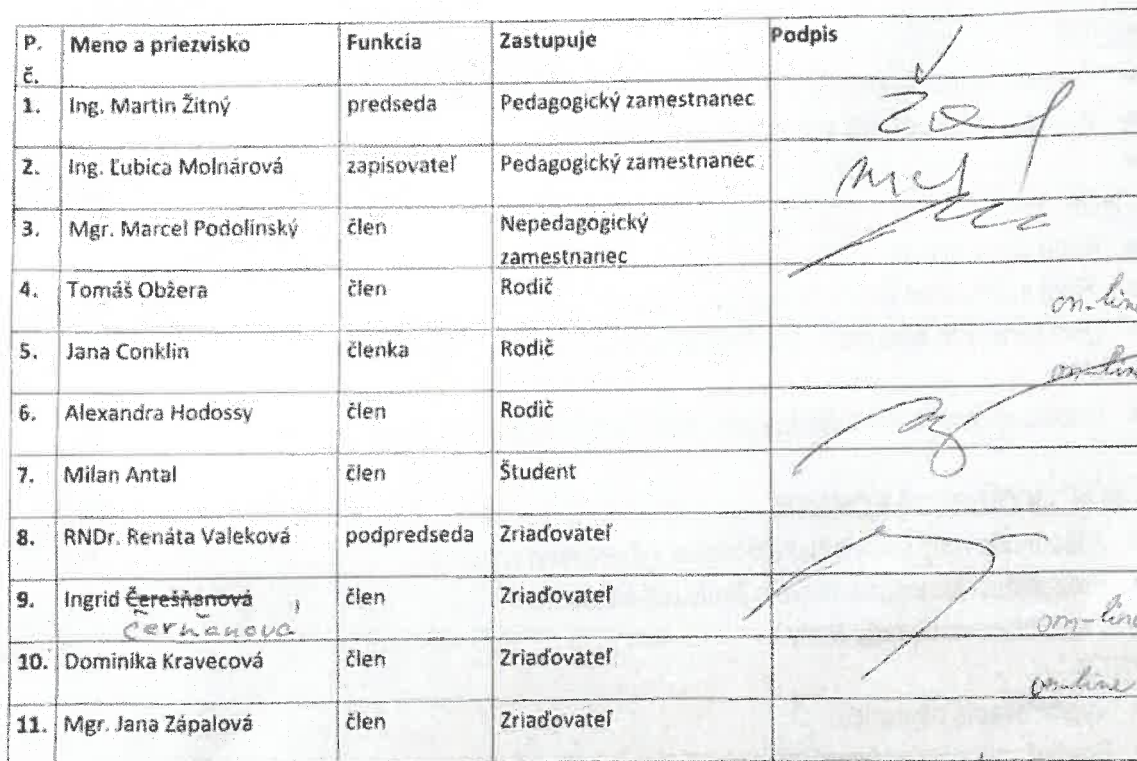 P. č. Meno a priezvisko Funkcia Zastupuje Podpis
1. Ing. Martin Žitný predseda Pedagogický zamestnanec
2. Ing. Ľubica Molnárová zapisovateľ Pedagogický zamestnanec
3. Mgr. Marcel Podolinský člen Nepedagogický zamestnanec
4. Tomáš Obžera člen Rodič on-line
5. Jana Conklin členka Rodič on-line
6. Alexandra Hodossy člen Rodič
7. Milan Antal člen Študent
8. RNDr. Renáta Valeková podpredseda Zriaďovateľ
9. Ingrid Čerešňanová člen Zriaďovateľ
Čerňanová on-line
10. Dominika Kravecová člen Zriaďovateľ on-line
11. Mgr. Jana Zápalová člen Zriaďovateľ